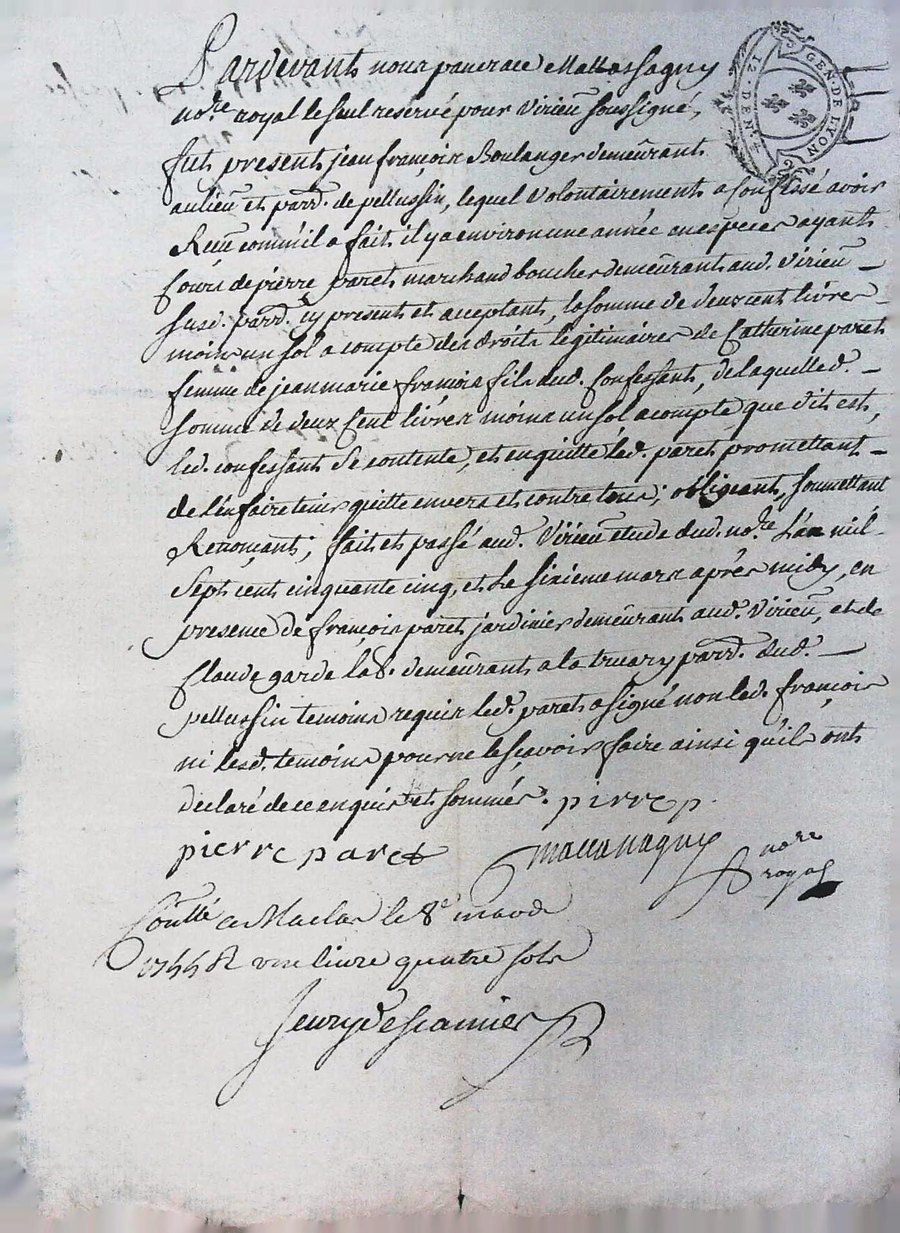 Pardevant nous pancrace Mattassagny
no.re royal le seul reservé pour Virieu soussigné,
fut present jean françois Boulanger demeurant
au lieu et parr. de pellussin, lequel Volontairement a Confessé avoir
Reçu comm'il a fait il y a environ une année en especes ayant
Cours de pierre paret marchand boucher demeurant aud. Virieu
susd. parr. cy present et acceptant, la somme de deux cent livres
moins un sol a compte des droits legitimaires de Catherine paret
femme de jean marie françois fils aud. Confessant, de laquelle d.
somme de deux Cent livres moins un sol a compte, que dit est,
led. confessant se contente, et en quitte led. paret promettant
de l'en faire tenir quitte envers et contre tous; obligeant, soumettant
Renonçant; fait et passé aud. Virieu etude dud. no.re L'an mil
Sept cent cinquante cinq, et Le sixieme mars après midy, en
presence de françois paret jardinier demeurant aud. Virieu, et de
Claude garde lab.r demeurant a la truary parr. dud.
pellussin temoins requis led. paret a signé non led. françois
ni lesd. temoins pour ne le sçavoir faire ainsi qu'ils ont
declaré de ce enquis et sommés. pirre p.
pierre paret
no.re
royal
Con.llé a Maclas le 8e mars
1755 R une livre quatre sols
GEN. DE LYON
12. DEN.